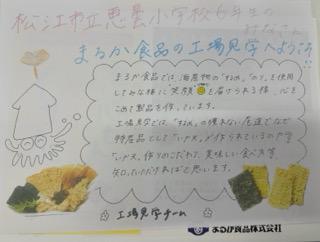 松江市立恵曇小学校6年生の
みなさん
まるか食品の工場見学へようこそ!!
まるか食品では、海産物の「するめ」「のり」を使用
してみな様に笑顔を届けられる様、心を
こめて製品を作っています。
工場見学では、「するめ」の獲れない尾道でなぜ
特産品として「いか天」が作られているのか
「いか天」作りのこだわり、美味しい食べ方等
知っていただければと思います。
☆工場見学チーム☆
まるか食品株式会社